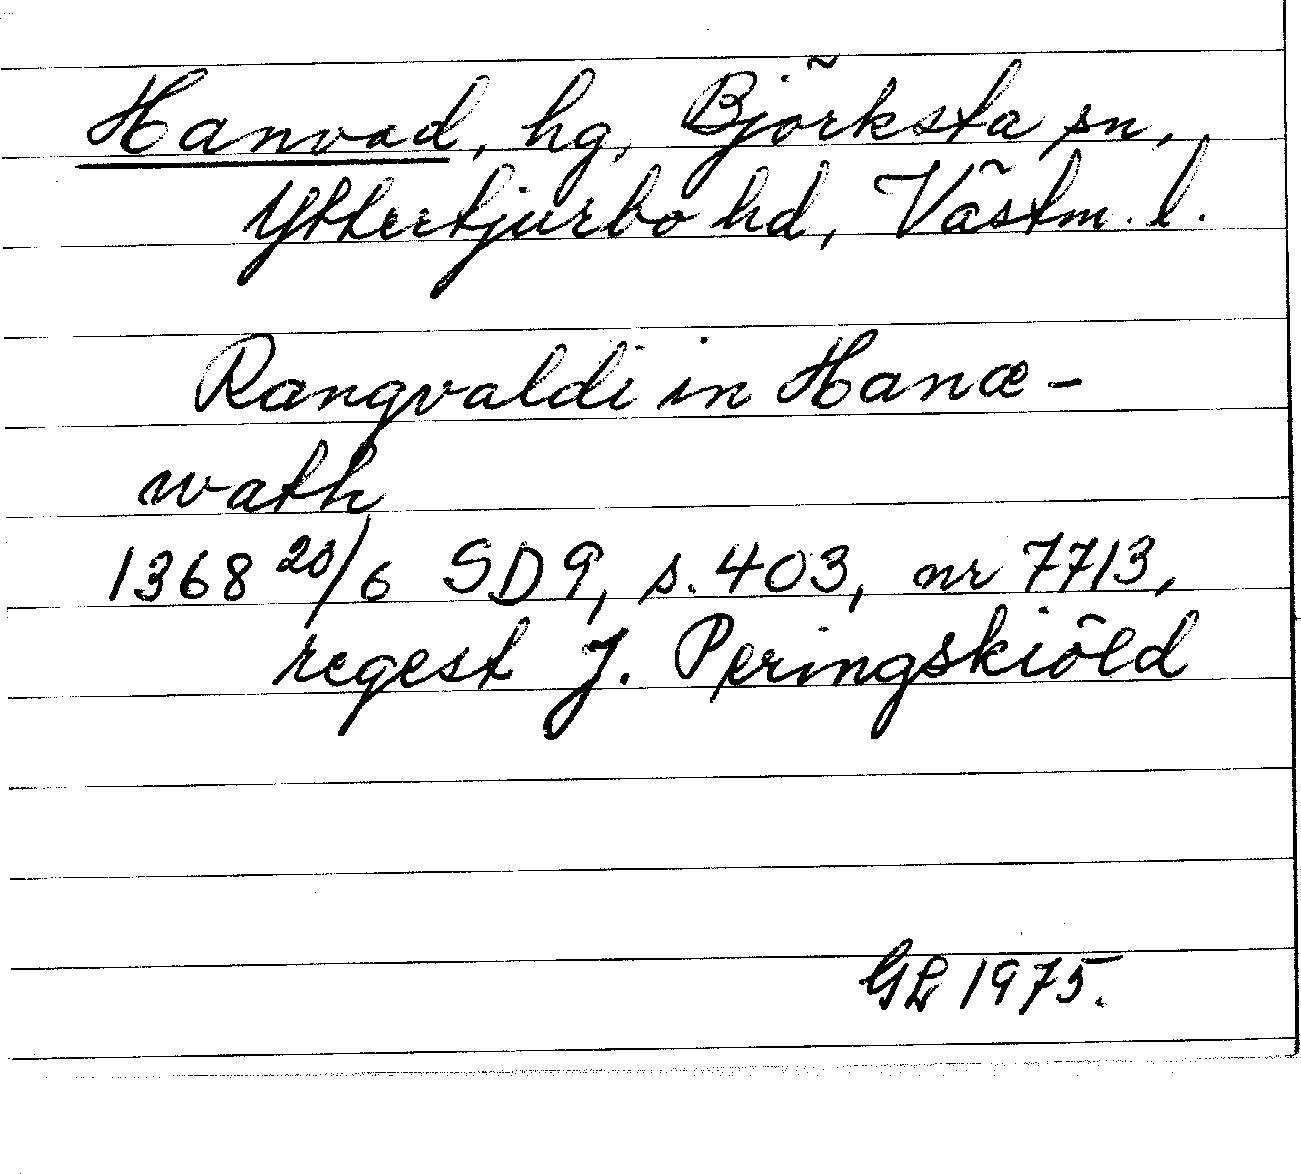 Hanvad, hg, Björksta sn,
Yttertjurbo hd, Västm. l.
Rangvaldi in Hanæ-
wath
1368 20/6 SD 9, s. 403, nr 7713,
regest J. Peringskiöld
GL 1975.